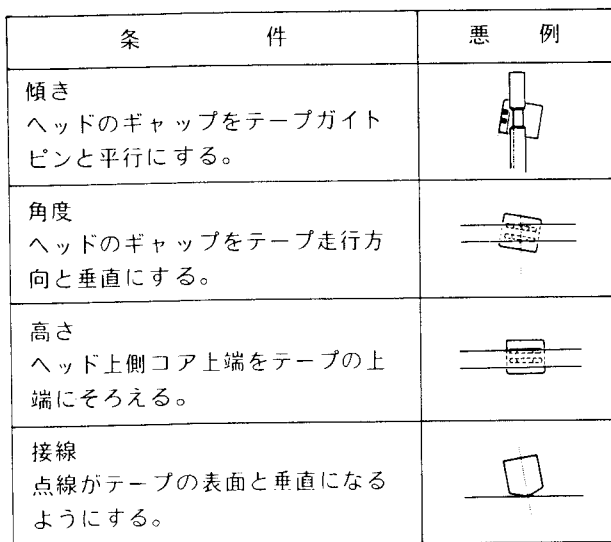 条件 悪例
傾き
ヘッドのギャップをテープガイト
ピンと平行にする。
角度
ヘッドのギャップをテープ走行方
向と垂直にする。
高さ
ヘッド上側コア上端をテープの上
端にそろえる。
接線
点線がテープの表面と垂直になる
ようにする。